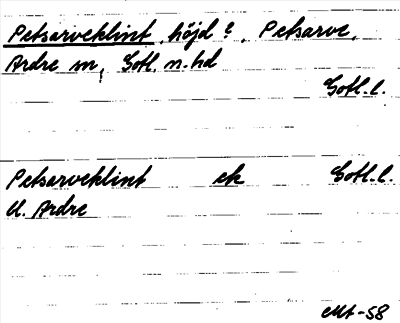 Petsarveklint, höjd?, Petsarve,
Ardre sn, Gotl. n. hd
Gotl. l.
Petsarveklint ek Gotl. l.
U. Ardre
Mt-58